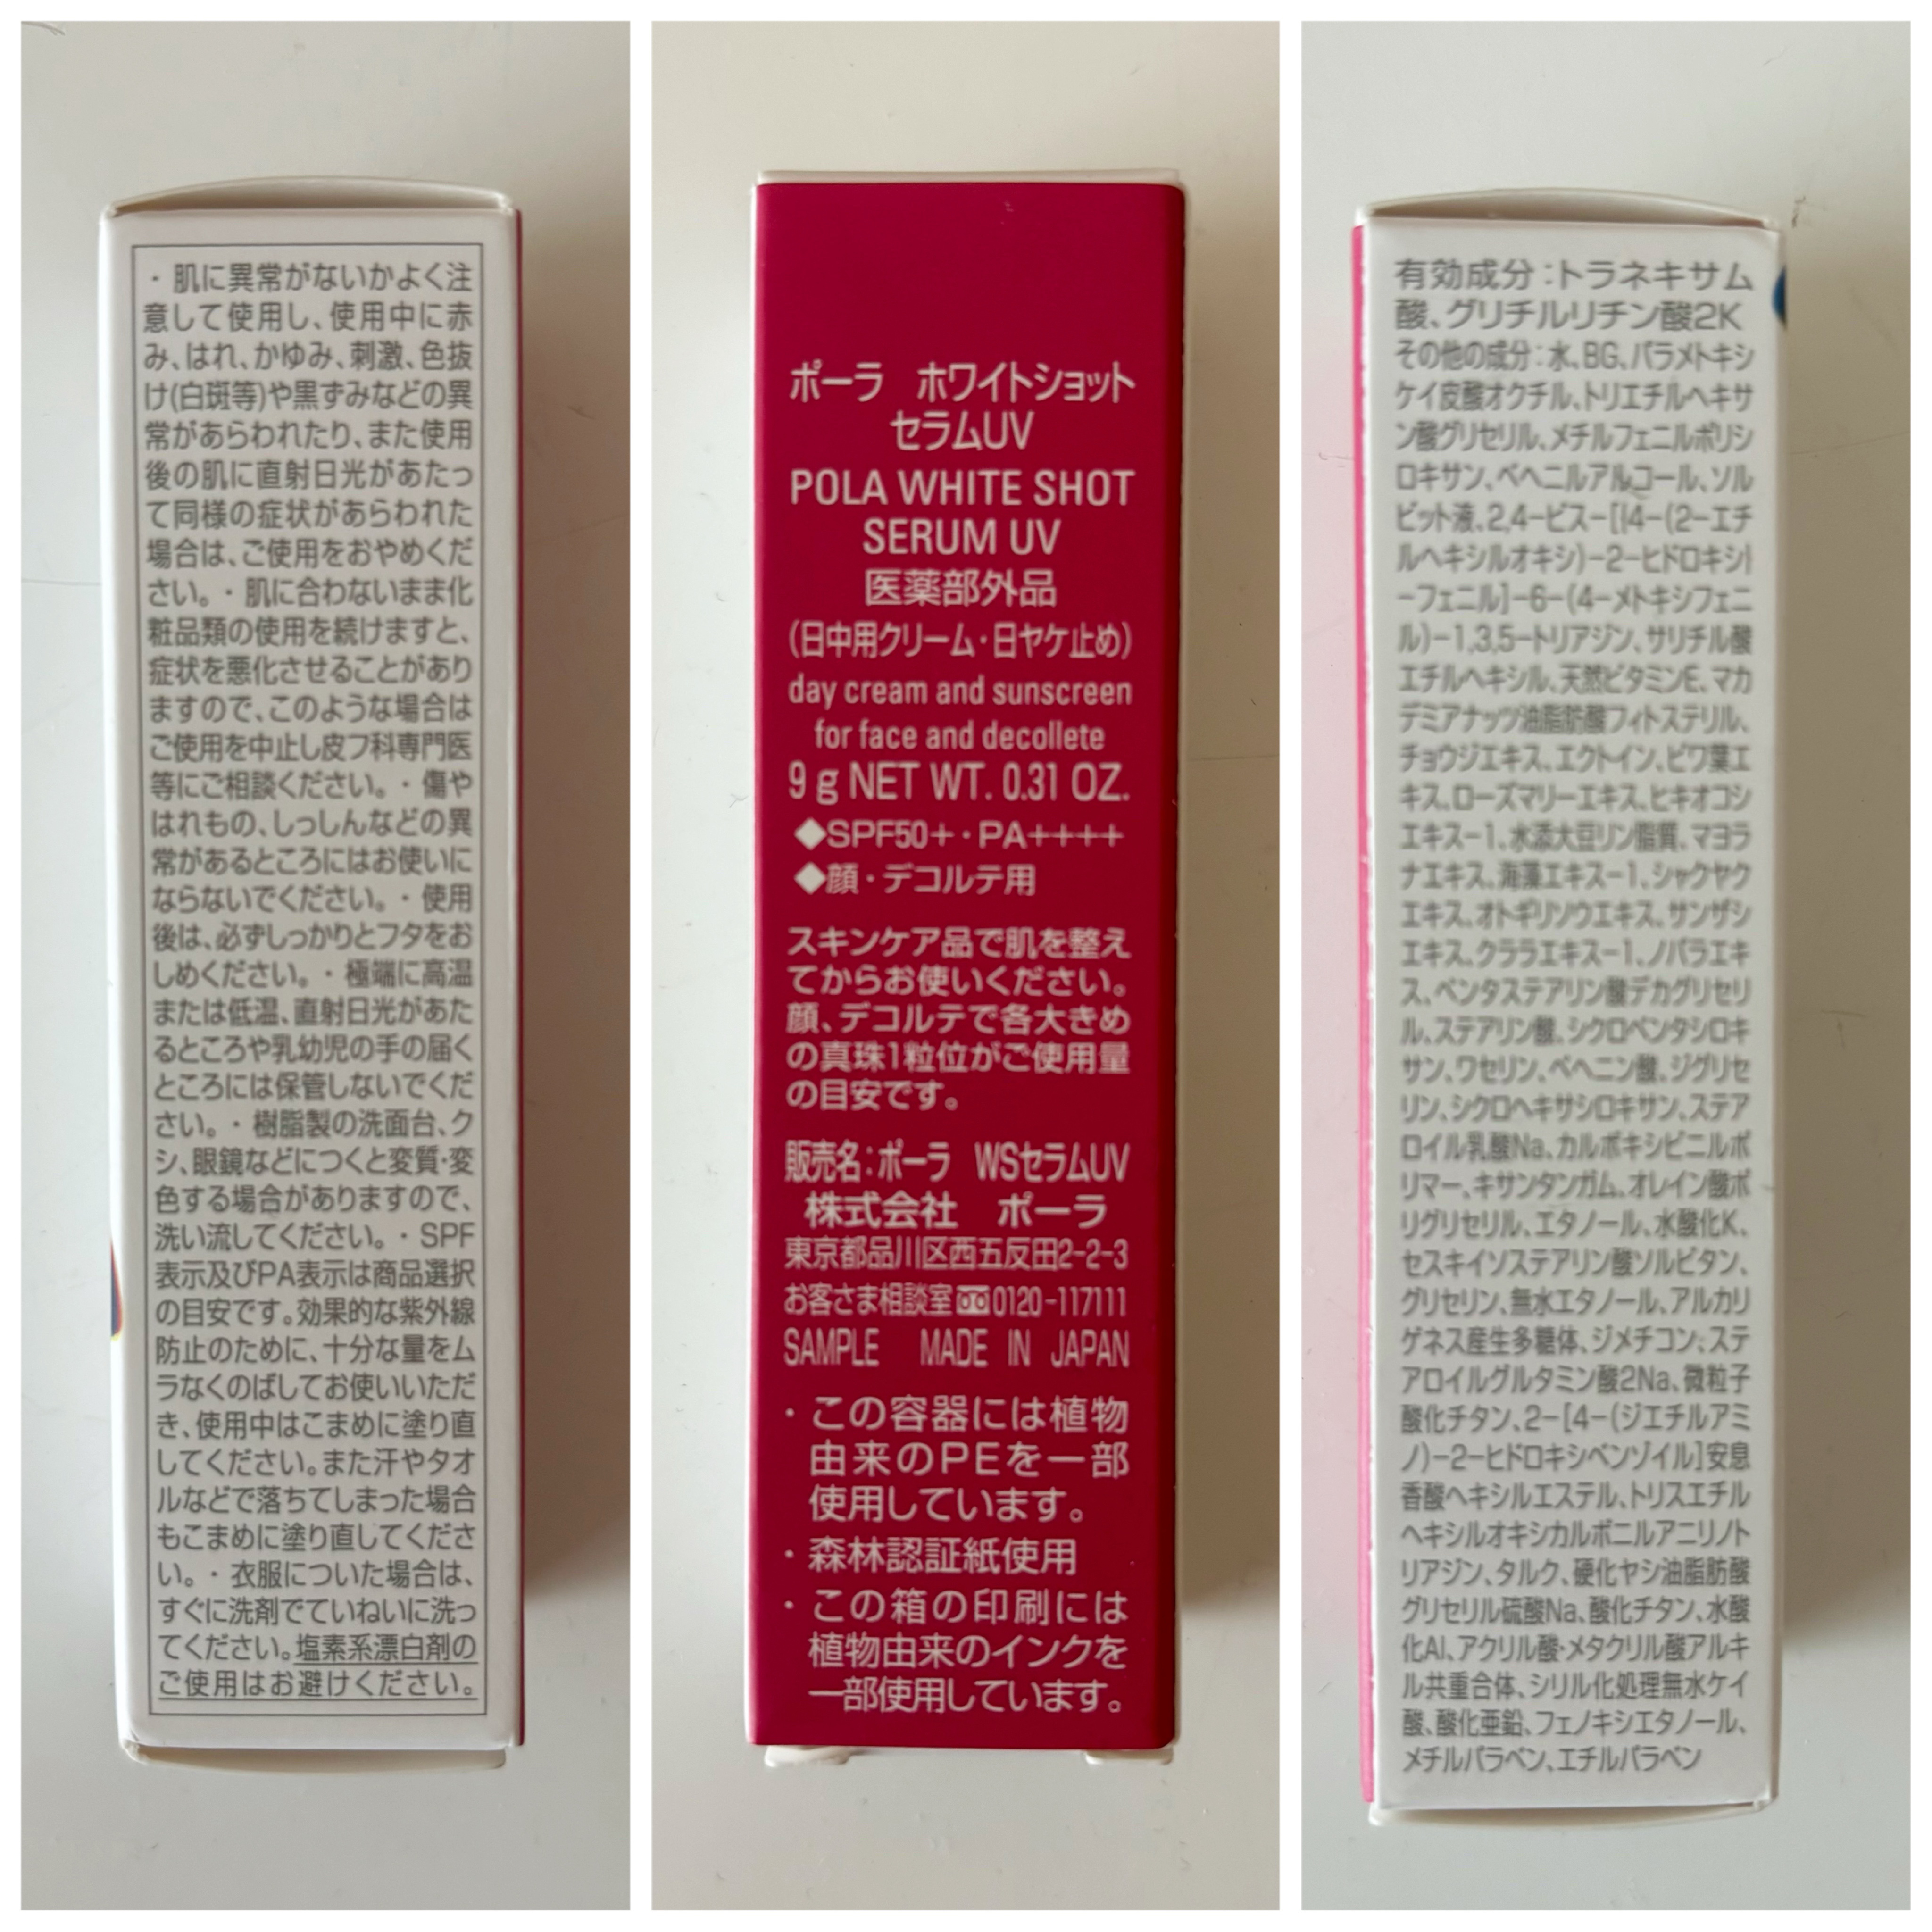 ・肌に異常がないかよく注
意して使用し、使用中に赤
み、はれ、かゆみ、刺激、色抜
け(白斑等)や黒ずみなどの異
常があらわれたり、また使用
後の肌に直射日光があたっ
て同様の症状があらわれた
場合は、ご使用をおやめくだ
さい。・肌に合わないまま化
粧品類の使用を続けますと、
症状を悪化させることがあり
ますので、このような場合は
ご使用を中止し皮フ科専門医
等にご相談ください。・傷や
はれもの、しっしんなどの異
常があるところにはお使いに
ならないでください。・使用
後は、必ずしっかりとフタをお
しめください。・極端に高温
または低温、直射日光があた
るところや乳幼児の手の届く
ところには保管しないでくだ
さい。・樹脂製の洗面台、ク
シ、眼鏡などにつくと変質・変
色する場合がありますので、
洗い流してください。・SPF
表示及びPA表示は商品選択
の目安です。効果的な紫外線
防止のために、十分な量をム
ラなくのばしてお使いいただ
き、使用中はこまめに塗り直
してください。また汗やタオ
ルなどで落ちてしまった場合
もこまめに塗り直してくださ
い。・衣服についた場合は、
すぐに洗剤でていねいに洗っ
てください。塩素系漂白剤の
ご使用はお避けください。
ポーラ ホワイトショット
セラムUV
POLA WHITE SHOT
SERUM UV
医薬部外品
(日中用クリーム・日ヤケ止め)
day cream and sunscreen
for face and decollete
9 g NET WT. 0.31 OZ.
◆SPF50+・PA++++
◆顔・デコルテ用
スキンケア品で肌を整え
てからお使いください。
顔、デコルテで各大きめ
の真珠1粒位がご使用量
の目安です。
販売名:ポーラ WSセラムUV
株式会社 ポーラ
東京都品川区西五反田2-2-3
お客さま相談室 0120-117111
SAMPLE MADE IN JAPAN
・この容器には植物
由来のPEを一部
使用しています。
・森林認証紙使用
・この箱の印刷には
植物由来のインクを
一部使用しています。
有効成分:トラネキサム
酸、グリチルリチン酸2K
その他の成分:水、BG、パラメトキシ
ケイ皮酸オクチル、トリエチルヘキサ
ン酸グリセリル、メチルフェニルポリシ
ロキサン、ベヘニルアルコール、ソル
ビット液、2,4-ビス-[{4-(2-エチ
ルヘキシルオキシ)-2-ヒドロキシ}
-フェニル]-6-(4-メトキシフェニ
ル)-1,3,5-トリアジン、サリチル酸
エチルヘキシル、天然ビタミンE、マカ
デミアナッツ油脂肪酸フィトステリル、
チョウジエキス、エクトイン、ビワ葉エ
キス、ローズマリーエキス、ヒキオコシ
エキス-1、水添大豆リン脂質、マヨラ
ナエキス、海藻エキス-1、シャクヤク
エキス、オトギリソウエキス、サンザシ
エキス、クララエキス-1、ノバラエキ
ス、ペンタステアリン酸デカグリセリ
ル、ステアリン酸、シクロペンタシロキ
サン、ワセリン、ベヘニン酸、ジグリセ
リン、シクロヘキサシロキサン、ステア
ロイル乳酸Na、カルボキシビニルポ
リマー、キサンタンガム、オレイン酸ポ
リグリセリル、エタノール、水酸化K、
セスキイソステアリン酸ソルビタン、
グリセリン、無水エタノール、アルカリ
ゲネス産生多糖体、ジメチコン、ステ
アロイルグルタミン酸2Na、微粒子
酸化チタン、2-[4-(ジエチルアミ
ノ)-2-ヒドロキシベンゾイル]安息
香酸ヘキシルエステル、トリスエチル
ヘキシルオキシカルボニルアニリノト
リアジン、タルク、硬化ヤシ油脂肪酸
グリセリル硫酸Na、酸化チタン、水酸
化Al、アクリル酸・メタクリル酸アルキ
ル共重合体、シリル化処理無水ケイ
酸、酸化亜鉛、フェノキシエタノール、
メチルパラベン、エチルパラベン